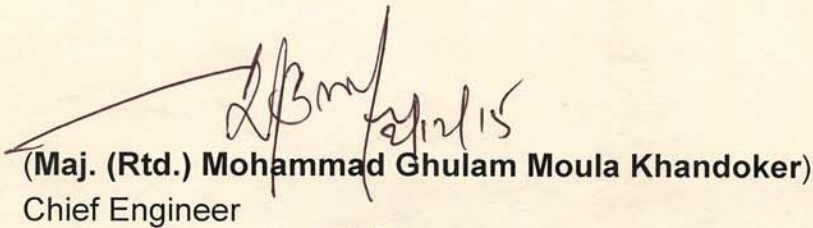 2/12/15
(Maj. (Rtd.) Mohammad Ghulam Moula Khandoker)
Chief Engineer